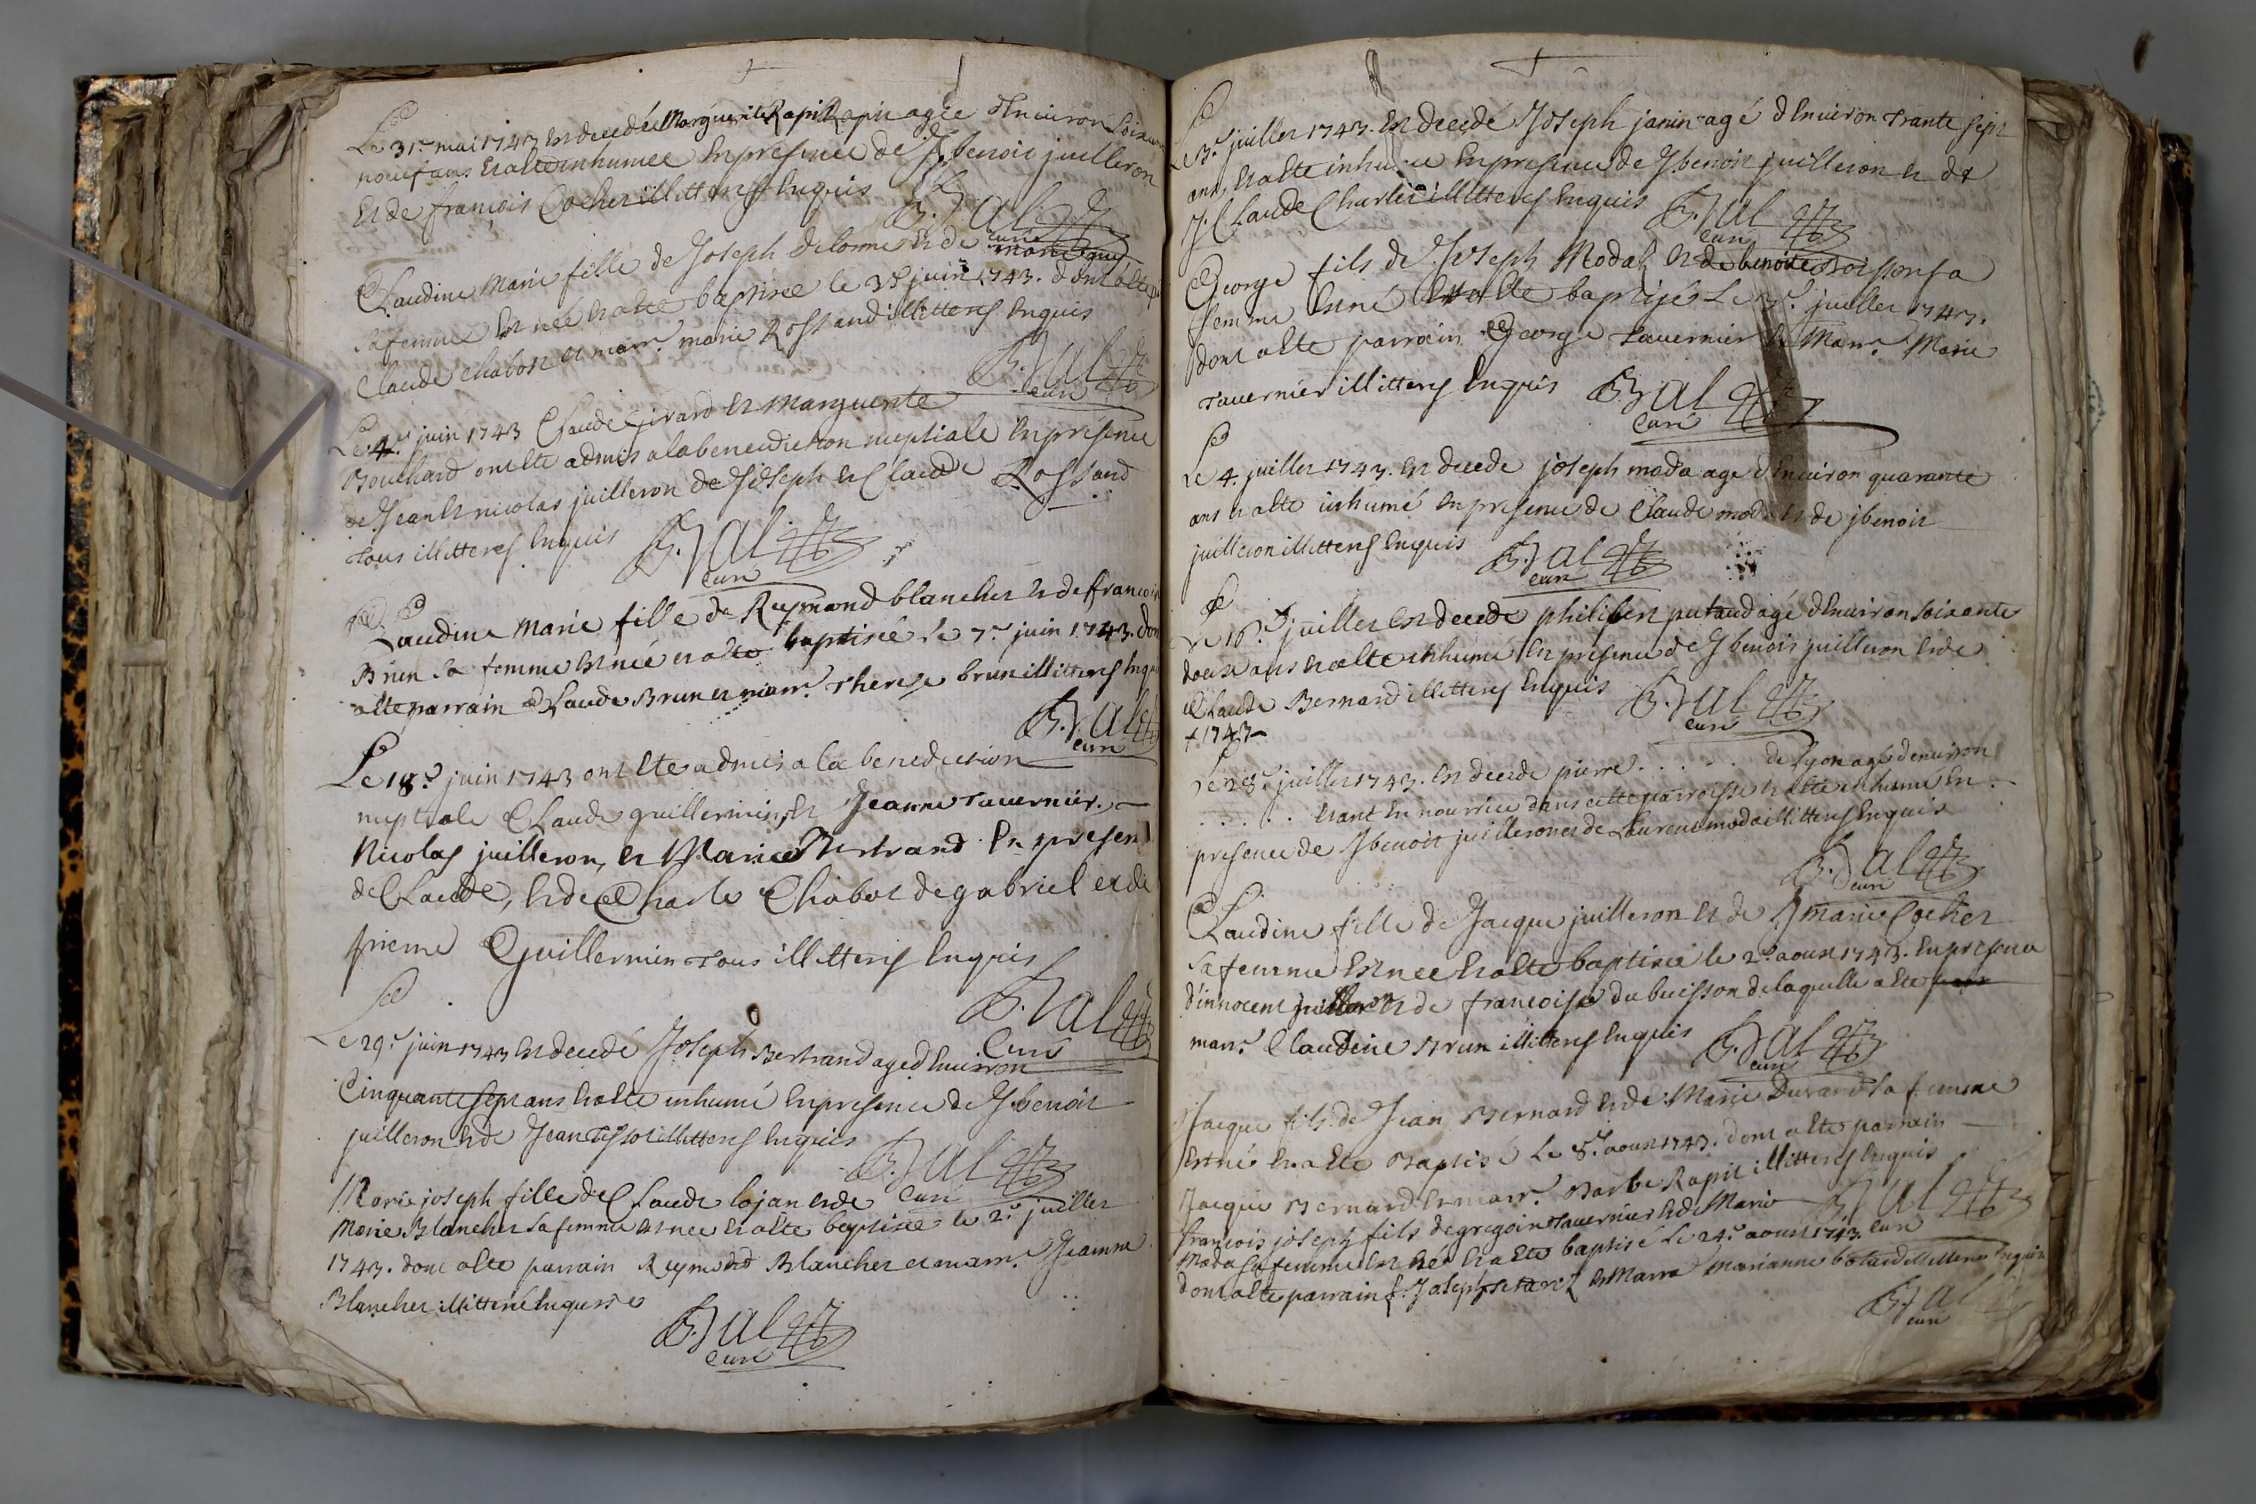 Le 31e mai 1743 est decedée Marguerite Rapit agée d'Environ Soixante
neuf ans Et a ete inhumee En presence de J. benoit juilleron
Et de françois Cochet illitteres Enquis
B. Jal curé
Claudine Marie fille de Joseph delorme Et de
sa femme Est née Et a ete baptisée le 3e juin 1743. dont a ete
Claude Chabot et marr. marie Rossand illitteres Enquis
B. Jal curé
Le 4e juin 1743 Claude Girard Et Marguerite
Bouchard ont ete admis a la benediction nuptiale En présence
de Jean Et nicolas juilleron de Joseph Et Claude Rossand
tous illitteres Enquis
B. Jal curé
Claudine Marie fille de Reymond blanchet Et de francoise
Brun Sa femme Est née et a ete baptisée le 7e juin 1743. dont
a ete parrain Claude Brun et marr. therese brun illitteres Enquis
B. Jal curé
Le 18e juin 1743 ont ete admis a la benediction
nuptiale Claude guillermin, Et Jeanne tavernier.
Nicolas juilleron, et Marie Bertrand En presence
de Claude, Et de Charle Chabot de gabriel et de
pierre Guillermin tous illitteres Enquis
B. Jal Curé
Le 29e juin 1743 Est decedé Joseph Bertrand agé d'Environ
Cinquante sept ans Et a ete inhumé En presence de J. benoit
juilleron Et de Jean illitteres Enquis
B. Jal curé
Marie joseph fille de Claude lojan Et de
Marie Blanchet sa femme est nee Et a ete baptisée le 2e juillet
1743. dont a ete parrain Reymond Blanchet et marr. Jeanne
Blanchet illitteré Enquis
B. Jal curé
Le 3e juillet 1743. Est decedé Joseph janin agé d'Environ trante sept
ans, Et a ete inhumé En presence de J. benoit juilleron Et de
J. Claude Charlet illitteres Enquis
B. Jal curé
George fils de Joseph Modas Et de benoite Boisson sa
femme Est né Et a ete baptisé Le 3e juillet 1743.
dont a ete parrain George tavernier Et Marr. Marie
tavernier illitteres Enquis
B. Jal curé
Le 4. juillet 1743. Est decede joseph moda agé d'Environ quarante
ans Et a ete inhumé En presence de Claude moda Et de j benoit
juilleron illitteres Enquis
B. Jal curé
Le 16e juillet Est decede philibert putaud agé d'Environ soixante
douze ans Et a ete inhumé En presence de J benoit juilleron Et de
Claude Bernard illitteres Enquis
+ 1743
B. Jal curé
Le 28e juillet 1743. Est decede pierre . . . . . de lyon agé d'environ
. . . . . Etant En nourrice dans cette parroisse Et a ete inhumé En
presence de J benoit juilleron et de Laurent moda illitteres Enquis
B. Jal curé
Claudine fille de Jacque juilleron Et de marie Cochet
sa femme Est nee Et a ete baptisée le 2e aoust 1743. En presence
d'innocent juilleron Et de francoise du buisson de laquelle a ete
marr. Claudine Brun illitteres Enquis
B. Jal curé
Jacque fils de Jean Bernard Et de Marie Durand sa femme
Est né Et a ete Baptisé Le 8e aoust 1743. dont a ete parrain
Jacque Bernard Et marr. Barbe Rapit illitteres Enquis
B. Jal curé
francois joseph fils de gregoire tavernier Et de Marie
Moda sa femme Est né Et a ete baptisé Le 24e aoust 1743
dont a ete parrain f. Joseph Et Marr. marianne illitteres Enquis
B. Jal curé